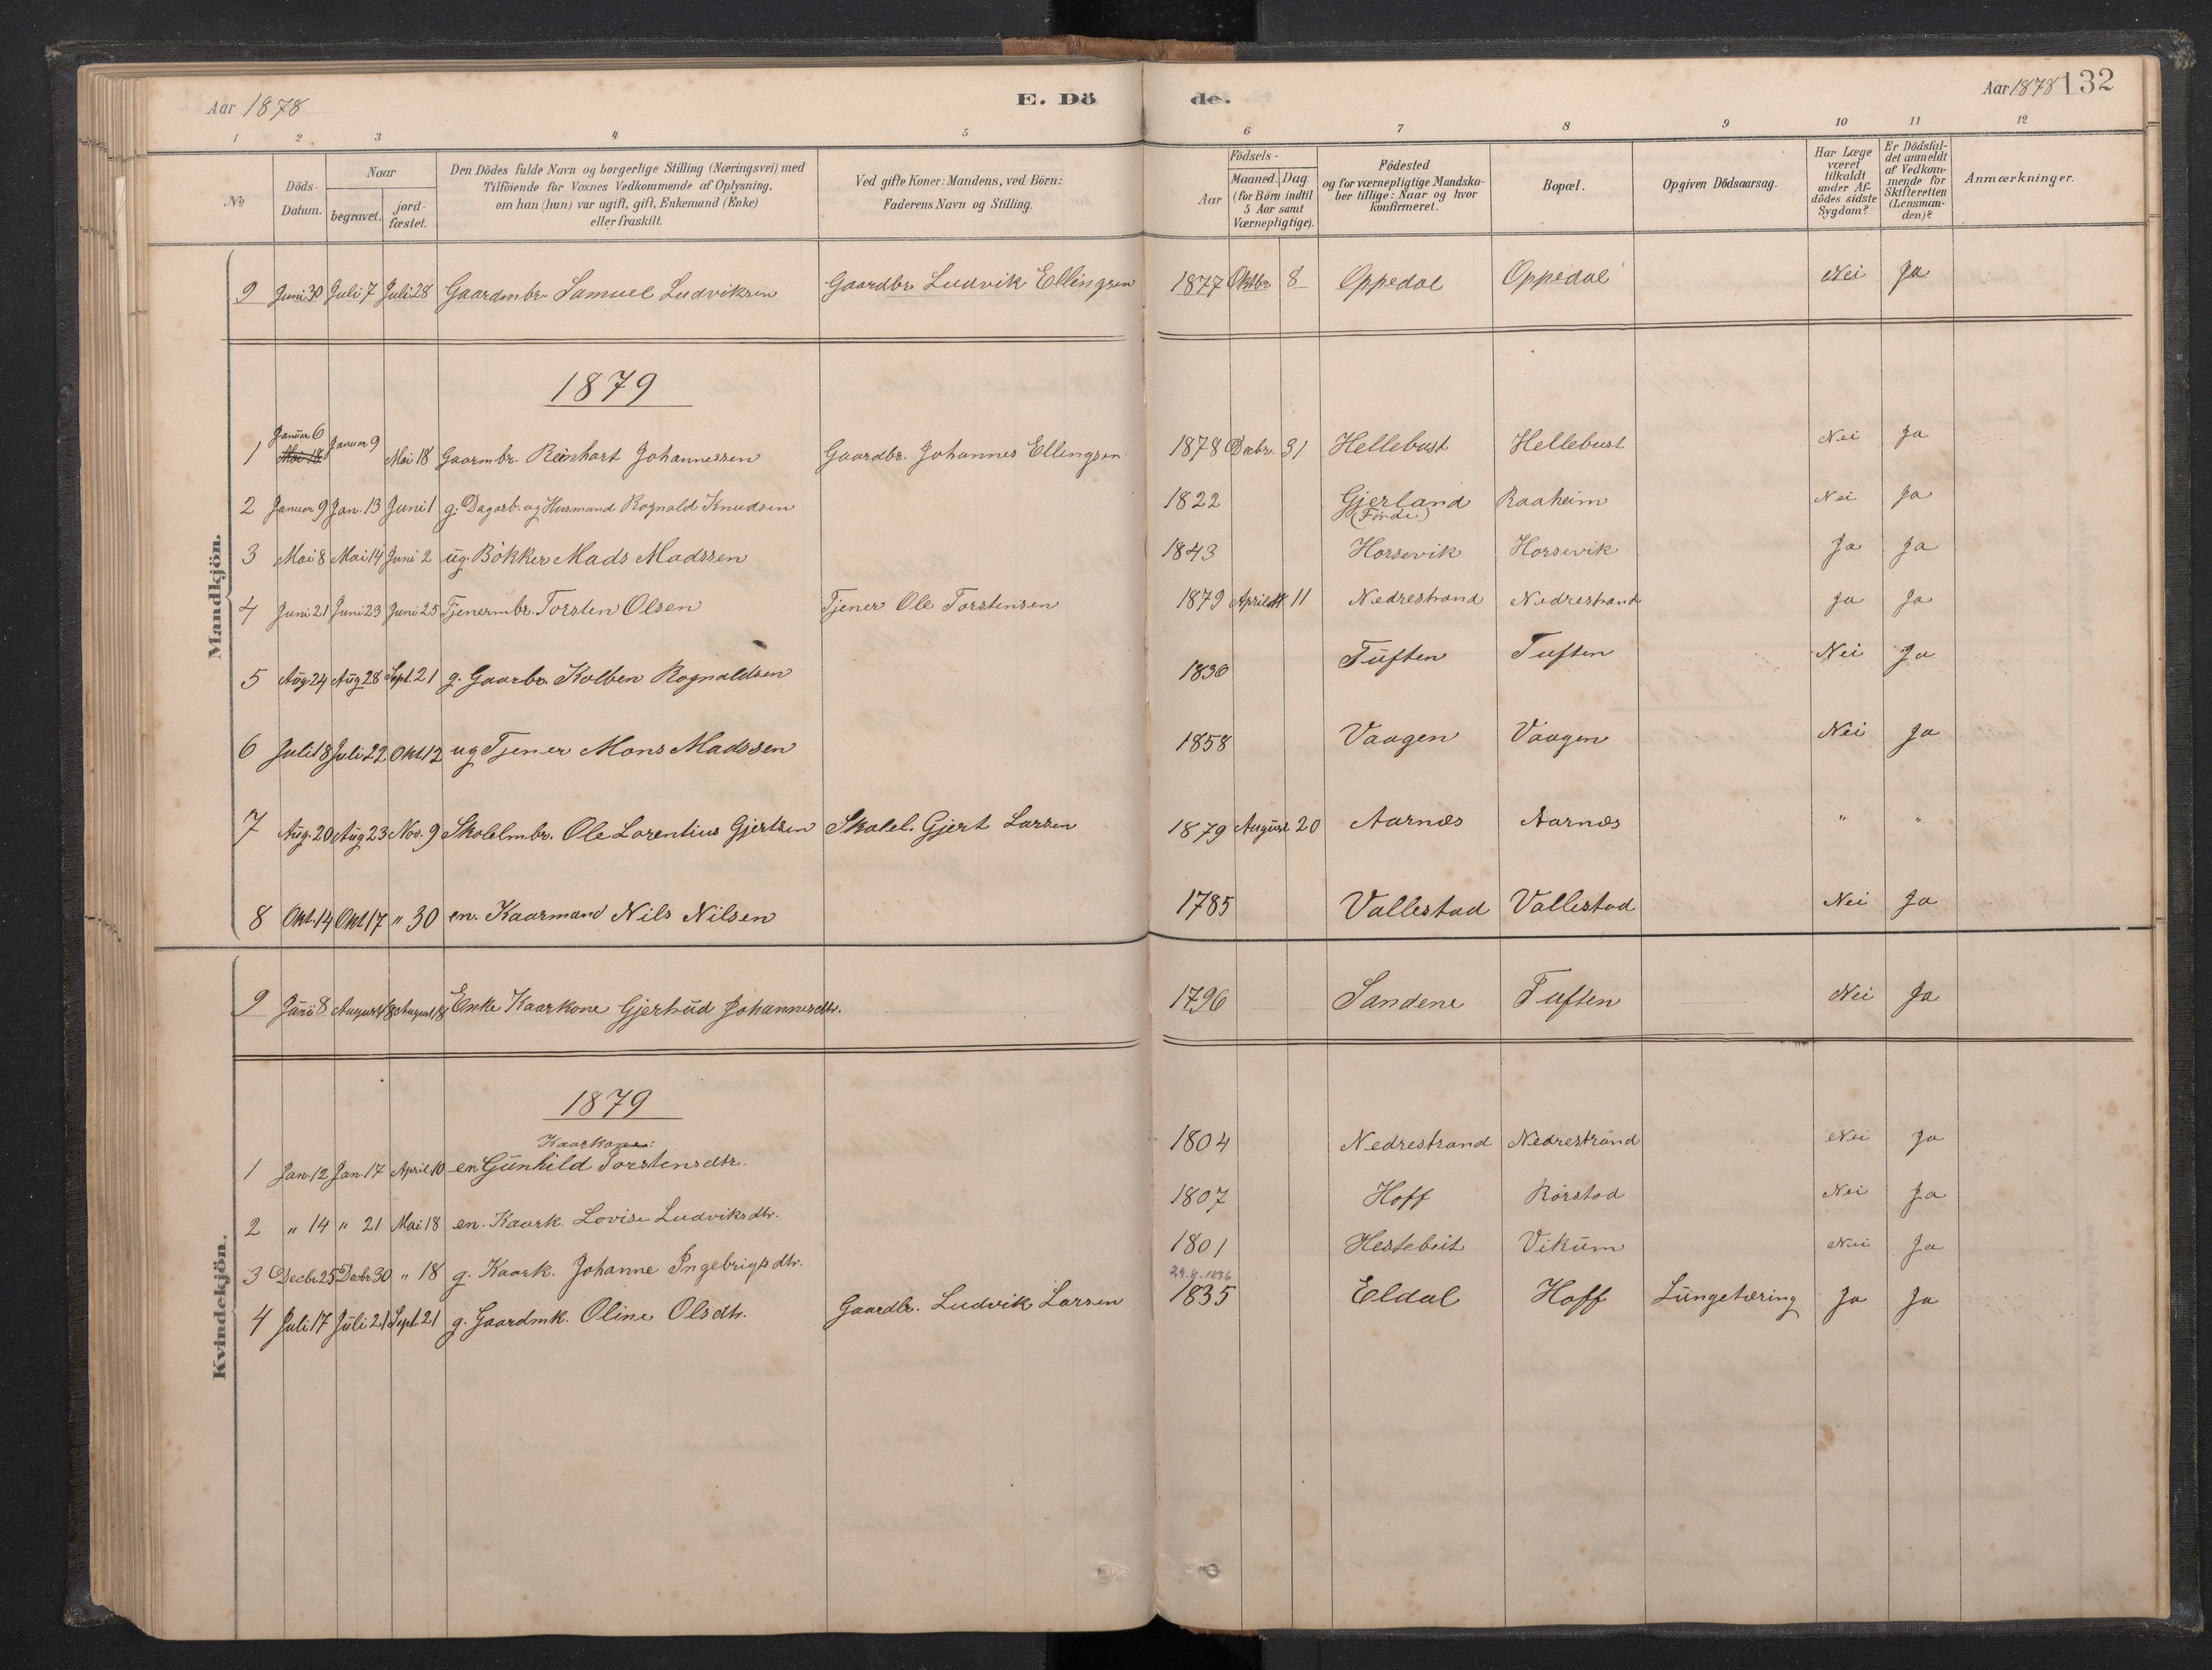 Aar 1878
E. Dö
de.
Aar 1878
132
1 2 3 4 5 6 7 8 9 10 11 12
No
Döds-Datum.
Naar
begravet.
jord-fæstet.
Den Dödes fulde Navn og borgerlige Stilling (Næringsvei) med
Tilföiende for Voxnes Vedkommende af Oplysning,
om han (hun) var ugift, gift, Enkemand (Enke)
eller fraskilt.
Ved gifte Koner: Mandens, ved Börn:
Faderens Navn og Stilling.
Födsels-
Aar
Maaned. Dag.
(for Börn indtil
5 Aar samt
Værnepligtige).
Födested
og for værnepligtige Mandska-
ber tillige: Naar og hvor
konfirmeret.
Bopæl.
Opgiven Dödsaarsag.
Har Læge
været
tilkaldt
under Af-
dödes sidste
Sygdom?
Er Dödsfal-
det anmeldt
af Vedkom-
mende for
Skifteretten
(Lensman-
den)?
Anmærkninger.
Mandkjön.
9 Juni 30 Juli 7 Juli 28 Gaardmbr. Samuel Ludviksen Gaardbr. Ludvik Ellingsen 1877 Oktbr 8 Oppedal Oppedal Nei Ja
1879
Januar 6
1 Mai 18 Januar 9 Mai 18 Gaarmbr. Reinhart Johannessen Gaardbr. Johannes Ellingsen 1878 Decbr. 31 Hellebust Hellebust Nei Ja
2 Januar 9 Jan. 13 Juni 1 g. Dagarb. og Husmand Rognald Knudsen 1822 Gjerland Raaheim Nei Ja
(Förde)
3 Mai 8 Mai 14 Juni 2 ug. Bökker Mads Madssen 1843 Horsevik Horsevik Ja Ja
4 Juni 21 Juni 23 Juni 25 Tjenermbr. Torsten Olsen Tjener Ole Torstensen 1879 April 11 Nedrestrand Nedrestrand Ja Ja
5 Aug 24 Aug 28 Sept. 21 g. Gaarbr. Kolben Rognaldsen 1830 Tuften Tuften Nei Ja
6 Juli 18 Juli 22 Okt 12 ug Tjener Mons Madssen 1858 Vaagen Vaagen Nei Ja
7 Aug. 20 Aug 23 Nov. 9 Skolelmbr. Ole Lorentius Gjertsen Skolel. Gjert Larsen 1879 August 20 Aarnæs Aarnæs " "
8 Okt. 14 Okt 17 " 30 en. Kaarmand Nils Nilsen 1785 Vallestad Vallestad Nei Ja
Kvindekjön.
9 Juni 8 August 18 August 18 Enke Kaarkone Gjertrud Johannesdtr. 1796 Sandene Tuften Nei Ja
1879
Kaarkone:
1 Jan. 12 Jan. 17 April 10 en Gunhild Torstensdtr. 1804 Nedrestrand Nedrestrand Nei Ja
2 " 14 " 21 Mai 18 en. Kaark. Lovise Ludviksdtr. 1807 Hoff Rörstad Nei Ja
3 Decbr 25 Decbr 30 " 18 g. Kaark. Johanne Ingebrigsdtr. 1801 Hestebeit Vikum Nei Ja
29.8.1836
4 Juli 17 Juli 21 Sept 21 g. Gaardmk. Oline Olsdtr. Gaardbr. Ludvik Larsen 1835 Eldal Hoff Lungetæring Ja Ja